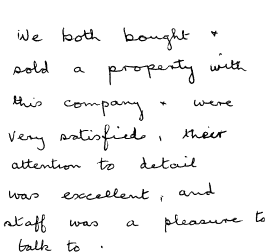 We both bought +
sold a property with
this company + were
very satisfied, their
attention to detail
was excellent, and
staff was a pleasure to
talk to .